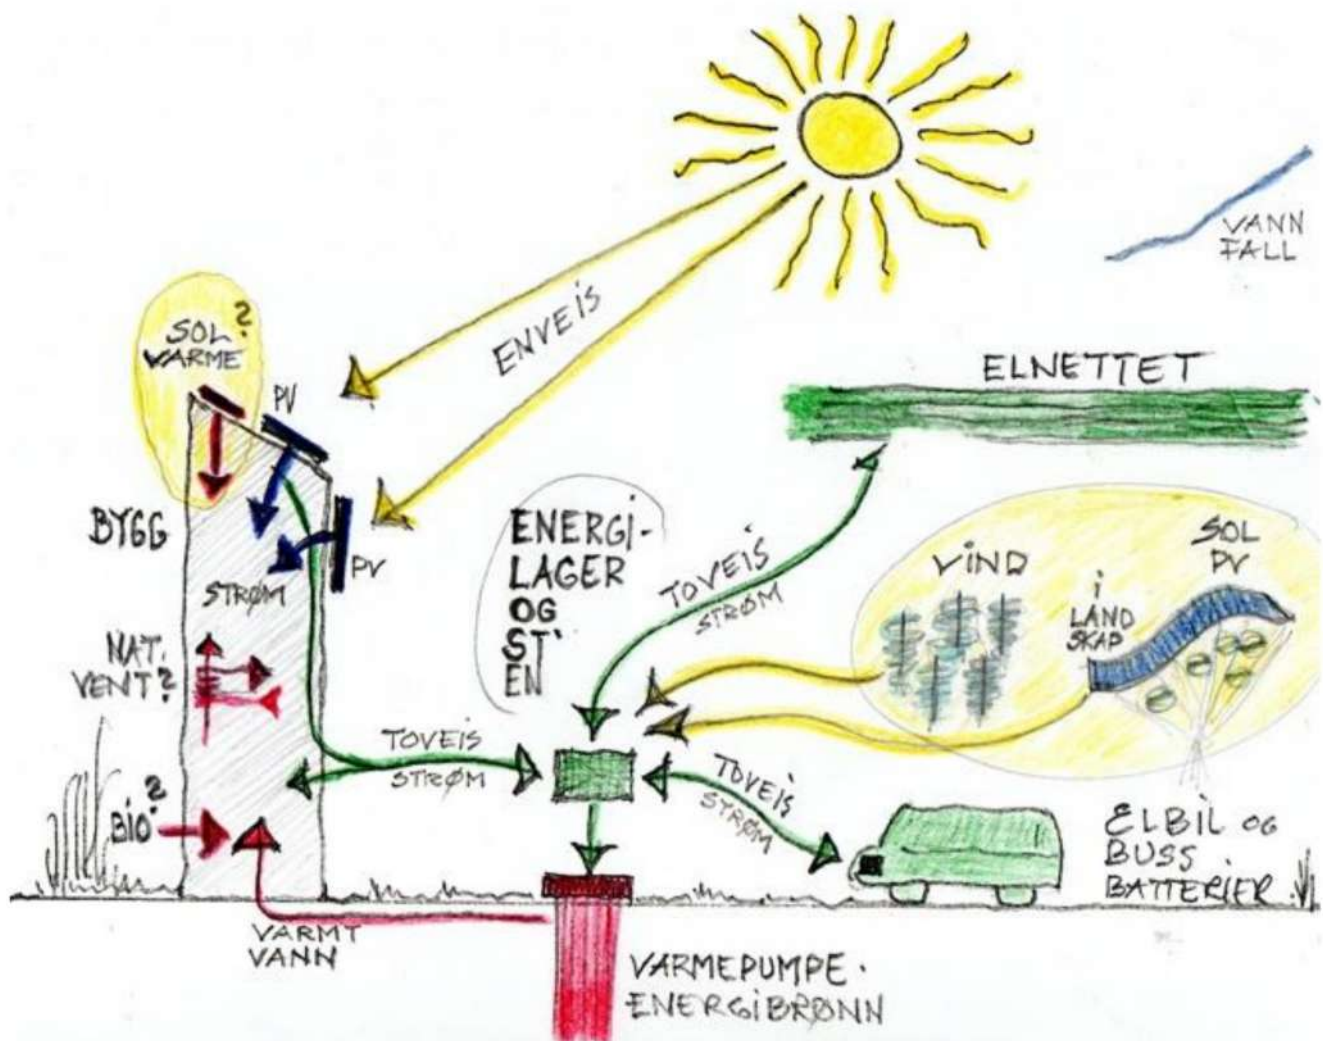 VANN
FALL
ENVEIS
SOL?
VARME
PV
ELNETTET
BYGG
PV
STRØM
ENERGI-
LAGER
OG
ST'
EN
TOVEIS
STRØM
VIND
SOL
PV
i
LAND
SKAP
NAT.
VENT?
TOVEIS
STRØM
TOVEIS
STRØM
BIO?
ELBIL OG
BUSS
BATTERIER
VARMT
VANN
VARMEPUMPE.
ENERGIBRØNN